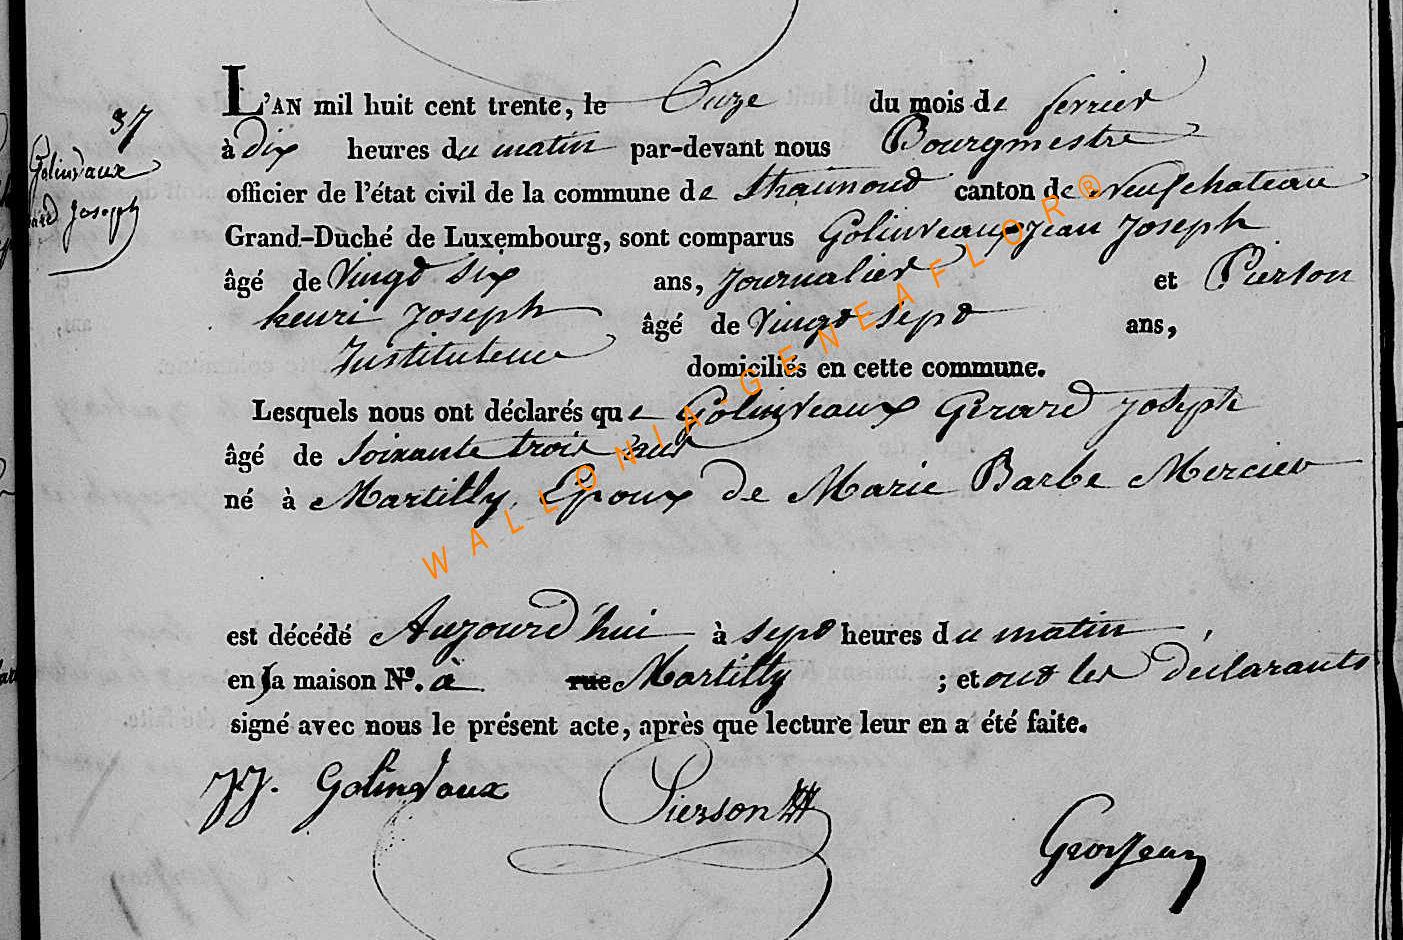 37
Golinvaux
Joseph
L'AN mil huit cent trente, le Onze du mois de fevrier
à dix heures du matin par-devant nous Bourgmestre
officier de l'état civil de la commune de Straimond canton de Neufchateau
Grand-Duché de Luxembourg, sont comparus Golinveaux Jean Joseph
âgé de Vingt six ans, Journalier et Pierson
henri Joseph âgé de Vingt Sept ans,
Instituteur domiciliés en cette commune.
Lesquels nous ont déclarés que Golinveaux Gerard Joseph
âgé de Soixante trois ans
né à Martilly, Epoux de Marie Barbe Mercier
est décédé Aujourd'hui à Sept heures du matin,
en sa maison N°. à rue Martilly ; et ont les déclarants
signé avec nous le présent acte, après que lecture leur en a été faite.
JJ. Golinvaux Pierson HH
Grosjean
WALLONIA-GENEAFLOR®